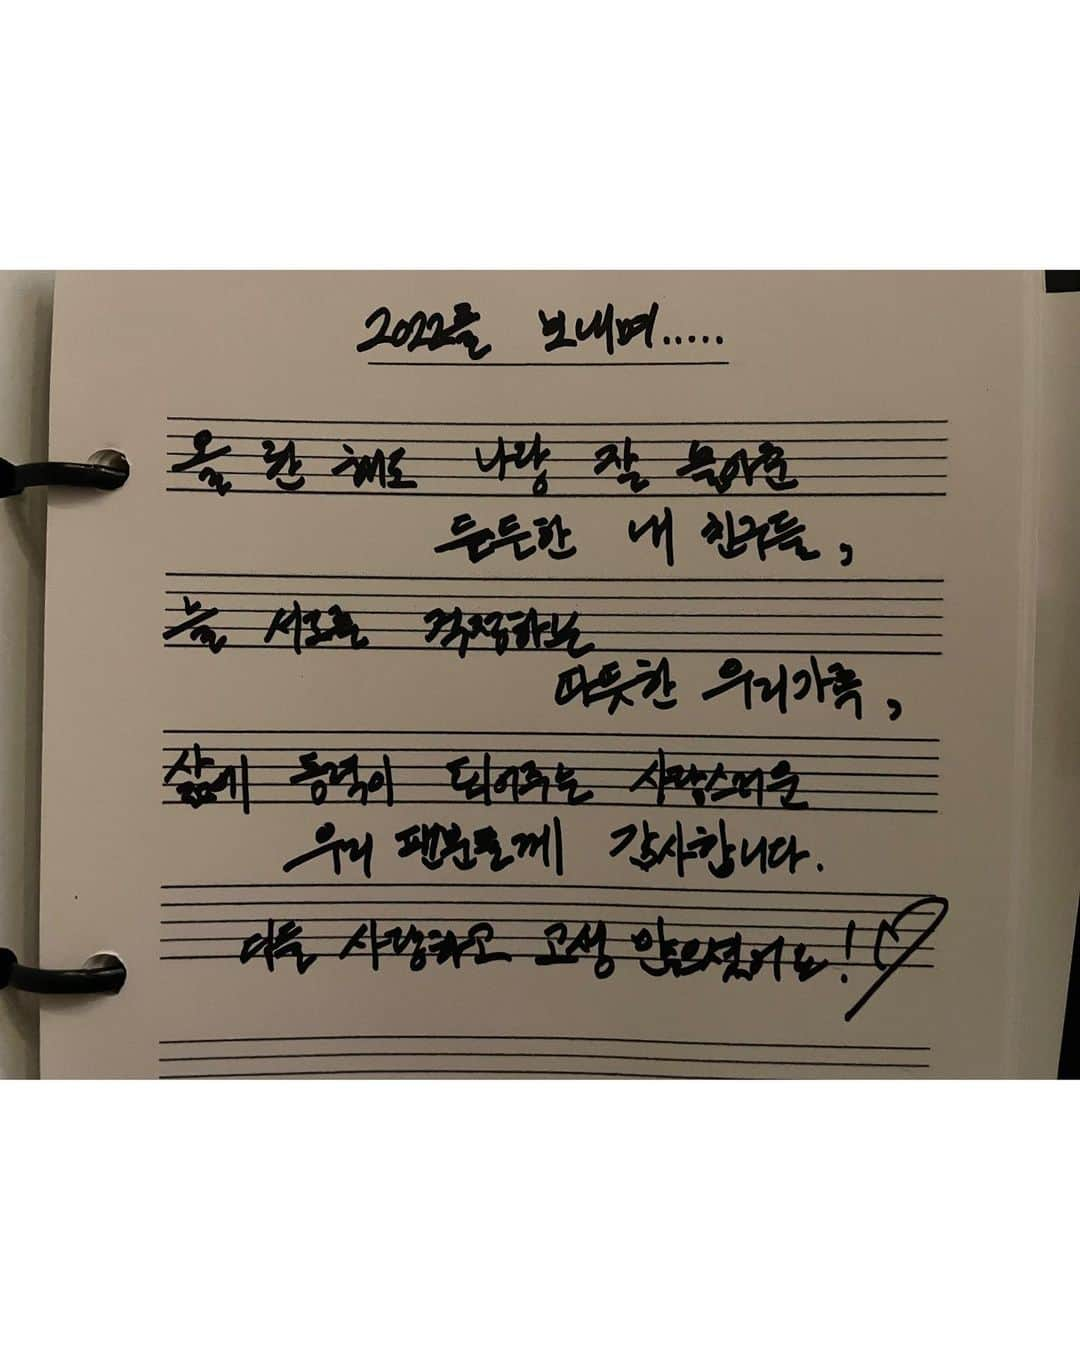 2022를 보내며.....
올 한 해도 나랑 잘 놀아준
든든한 내 친구들,
늘 서로를 걱정하는
따뜻한 우리가족,
삶에 동력이 되어주는 사랑스러운
우리 팬분들께 감사합니다.
다들 사랑하고 고생 많으셨어요!♡